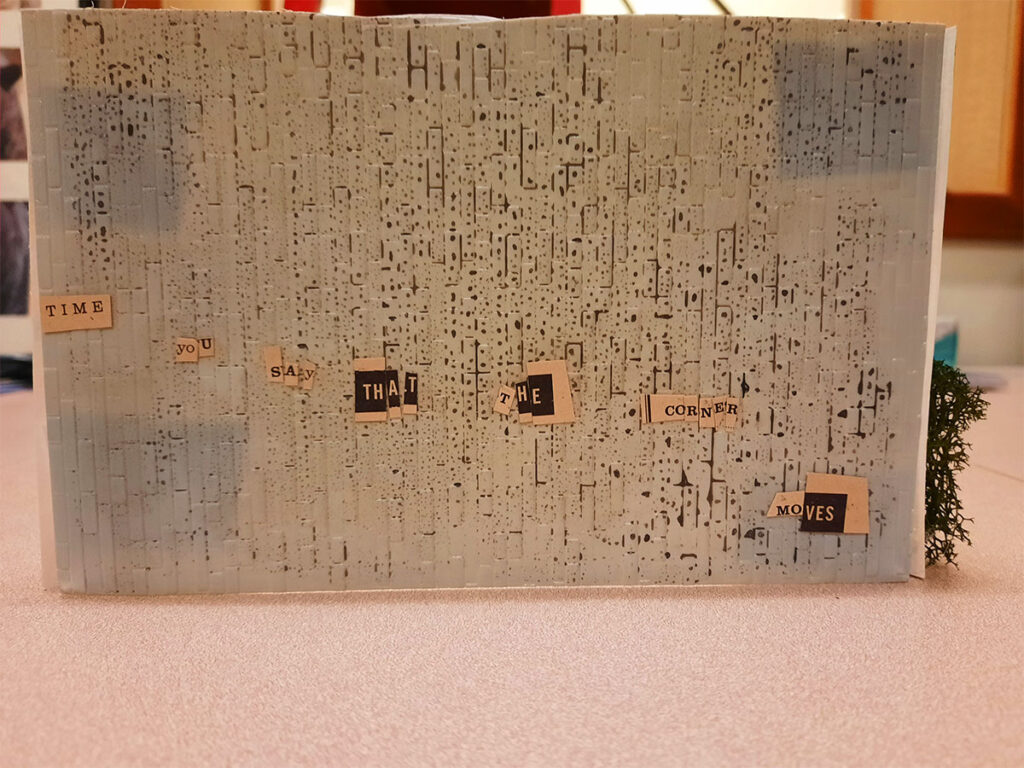 TIME
yoU
SAy
THAT
THE
CORNER
MOVES